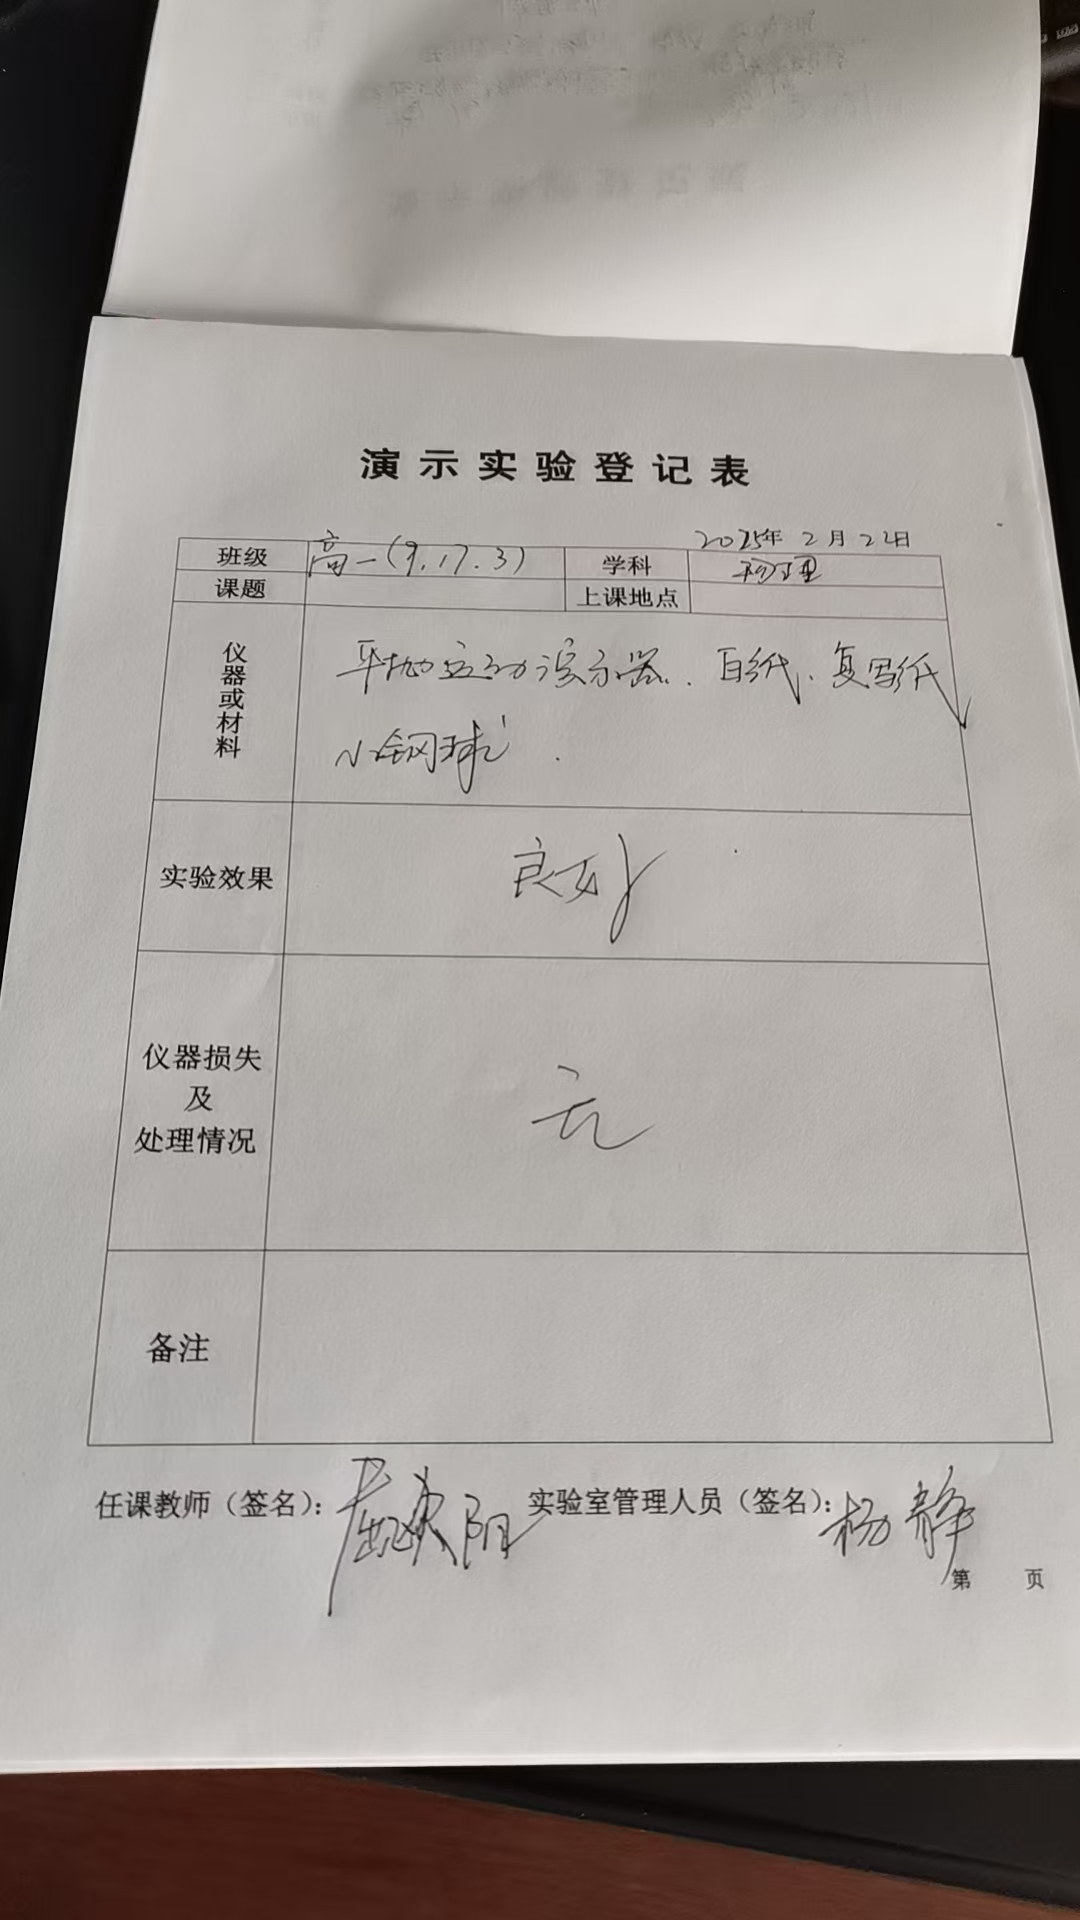 演示实验登记表
2025年2月24日
班级 高一(9.17.3) 学科 物理
课题 上课地点
仪器或材料 平抛运动演示器、白纸、复写纸
小钢球.
实验效果 良好
仪器损失
及
处理情况
无
备注
任课教师（签名）： 欧阳 实验室管理人员（签名）：杨静
第 页